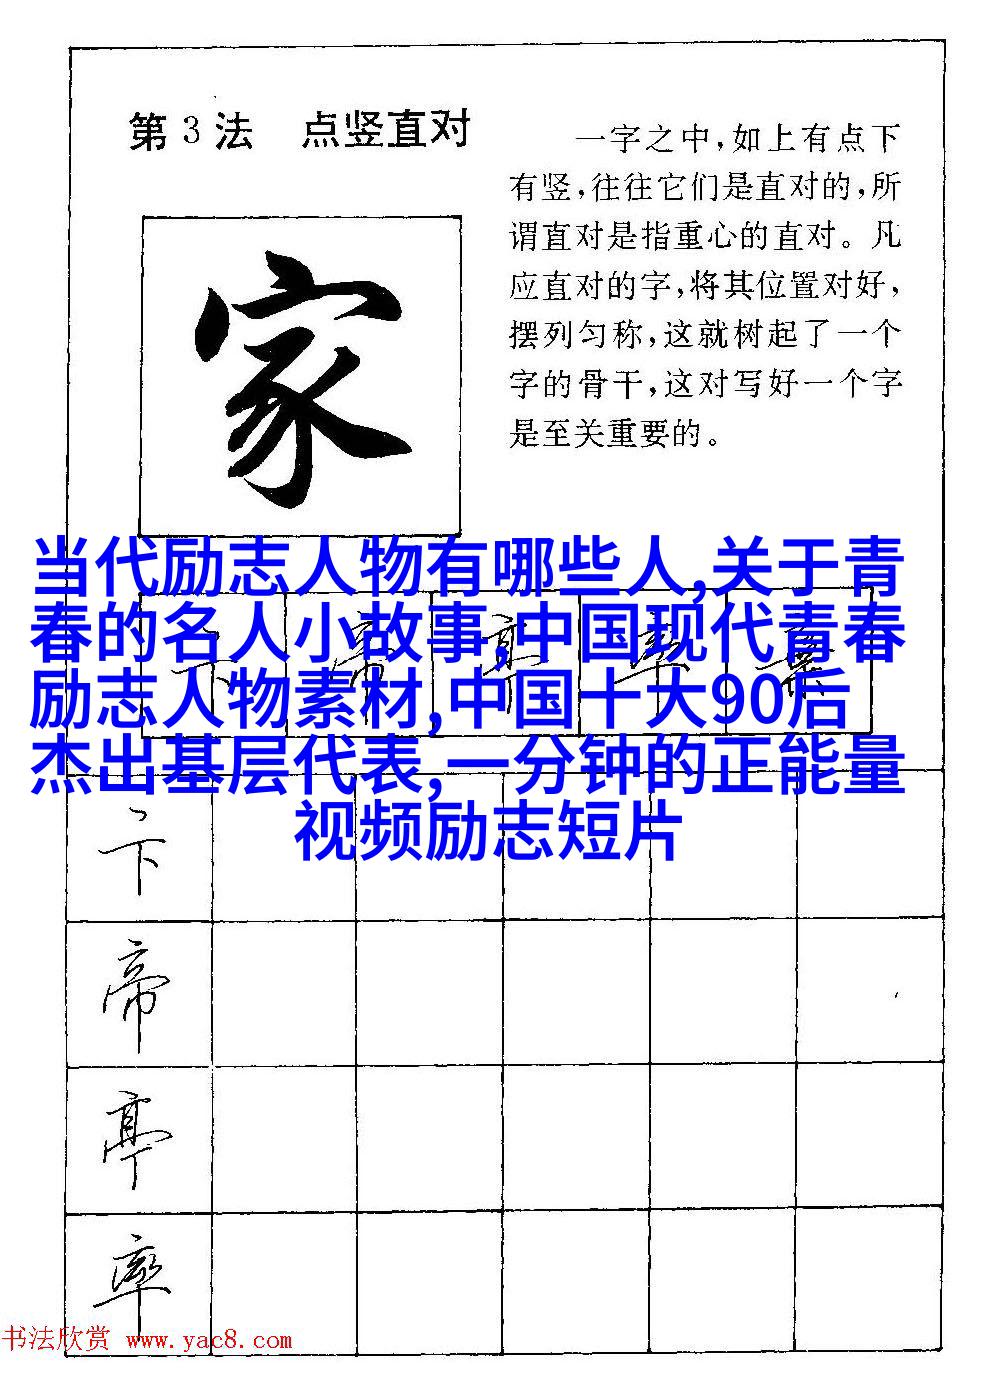 第3法 点竖直对
一字之中,如上有点下
有竖,往往它们是直对的,所
谓直对是指重心的直对。凡
应直对的字,将其位置对好,
摆列匀称,这就树起了一个
字的骨干,这对写好一个字
是至关重要的。
家
当代励志人物有哪些人,关于青
春的名人小故事,中国现代青春
励志人物素材,中国十大90后
杰出基层代表,一分钟的正能量
视频励志短片
卞 帝 亭 率
卞
帝
亭
率
书法欣赏 www.yac8.com